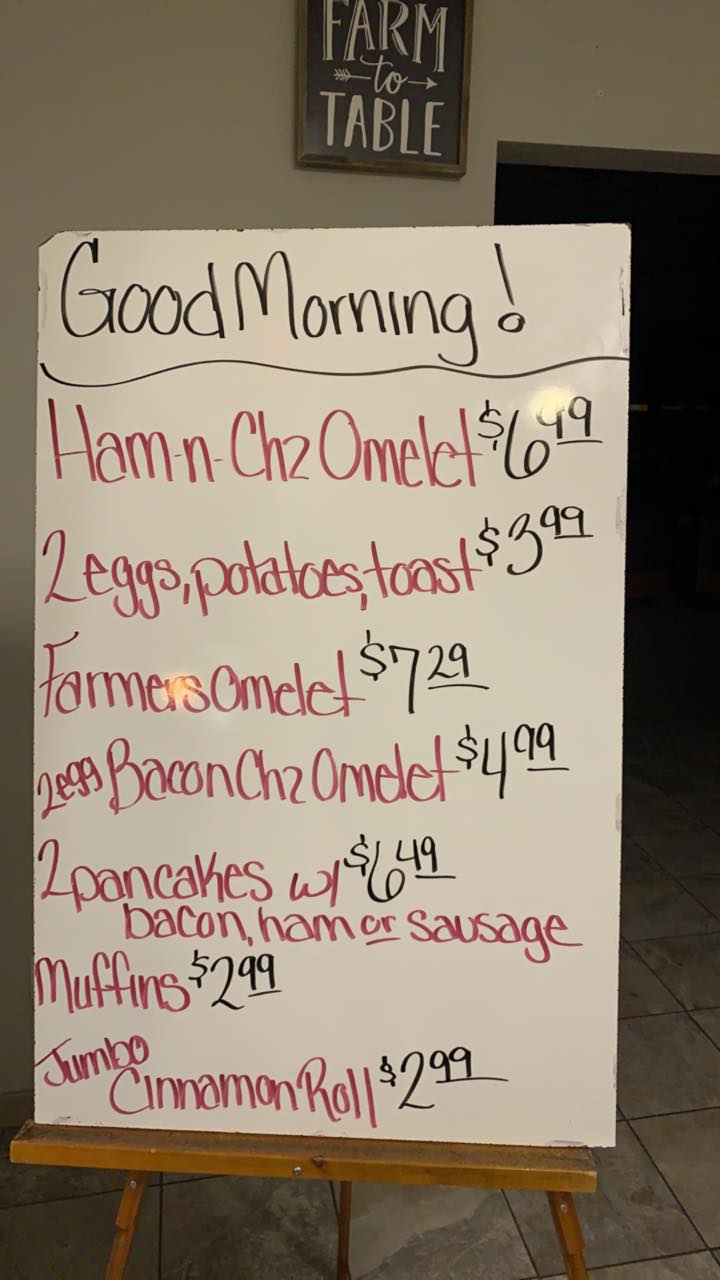 FARM
to
TABLE
Good Morning!
Ham-n-Chz Omelet $6.99
2 eggs, potatoes, toast $3.99
Farmers Omelet $7.29
2 egg Bacon Chz Omelet $4.99
2 pancakes w/ $6.49
bacon, ham or sausage
Muffins $2.99
Jumbo
Cinnamon Roll $2.99